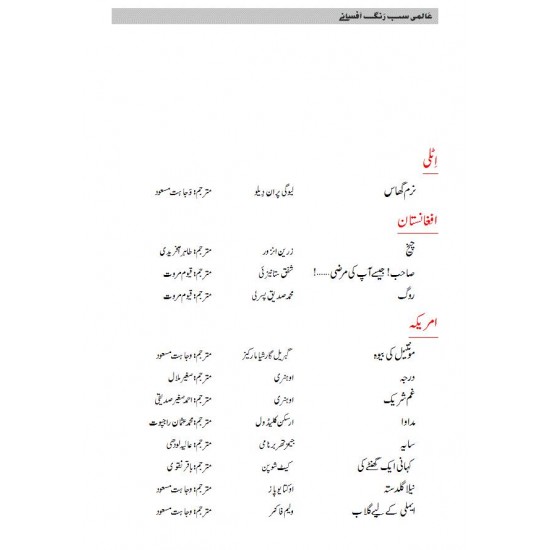 عالمی سب رنگ افسانے
اٹلی
نرم گھاس لیوگی پران دیلو مترجم: وجاہت مسعود
افغانستان
چیخ زرین انزور مترجم: طاہر آفریدی
صاحب! جیسے آپ کی مرضی......! شفق ستانیزئی مترجم: قیوم مروت
روگ محمد صدیق پسرلی مترجم: قیوم مروت
امریکہ
مونتیل کی بیوہ گبریل گارشیا مارکیز مترجم: وجاہت مسعود
درجہ او ہنری مترجم: صغیر ملال
غم شریک او ہنری مترجم: احمد صغیر صدیقی
مداوا ارسکن کالڈول مترجم: محمد عثمان راجپوت
سایہ مترجم: عالیہ لودھی
کہانی ایک گھنٹے کی کیٹ شوپن مترجم: باقر نقوی
نیلا گلدستہ اوکتاویو پاز مترجم: وجاہت مسعود
ایملی کے لیے گلاب ولیم فاکنر مترجم: وجاہت مسعود